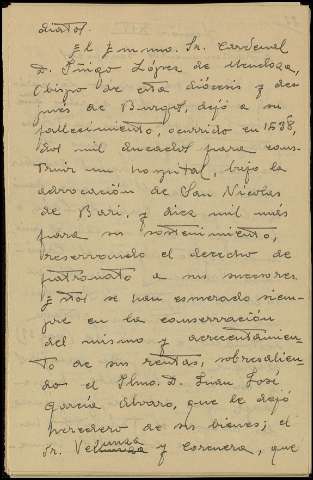 diatos.
El Emmno. Sr. Cardenal
D. Iñigo López de Mendoza,
Obispo de esta diócesis y des
pués de Burgos, dejó a su
fallecimiento, ocurrido en 1538,
dos mil ducados para cons-
truir un hospital, bajo la
advocación de San Nicolas
de Bari, y diez mil más
para su sostenimiento,
reservando el derecho de
patronato a sus sucesores.
Estos se han esmerado siem-
pre en la conservación
del mismo y acrecentamien-
to de sus rentas, sobresalien-
do el Ilmo. D. Juan José
García Alvaro, que le dejó
heredero de sus bienes; el
Sr. y Corcuera, que